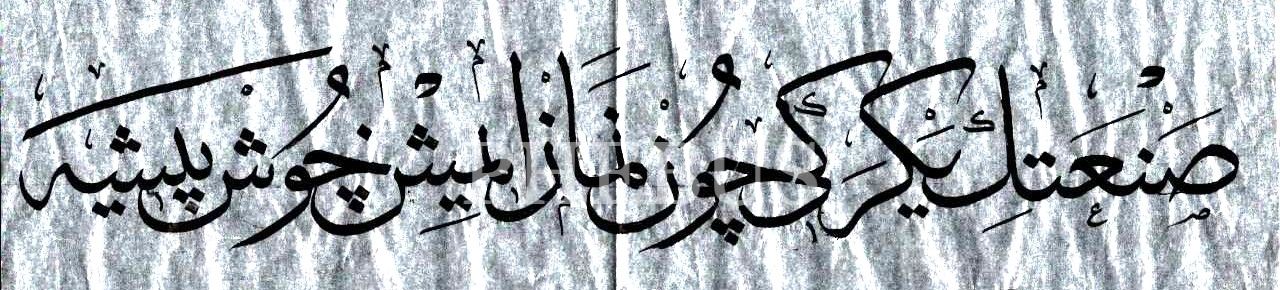 صَنْعَتِكْ يَكْرَكِي چُونْ نَمَازْ ايمِيشْ خُوشْ پِيشَه